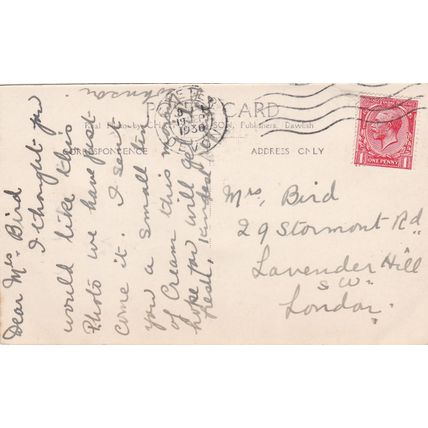 POST CARD
Real Photo by Ch SON, Publishers, Dawlish
CORRESPONDENCE
ADDRESS ONLY
EXETER
19 SEP
1930
DEVON
ONE PENNY
1 1
Dear Mrs Bird
I thought you
would like this
Photo we have just
come it. I sent
you a small tin
of Cream this morning
hope you will get it
fresh,
Johnson
Mrs, Bird
29 Stormont Rd
Lavender Hill
S W.
London.